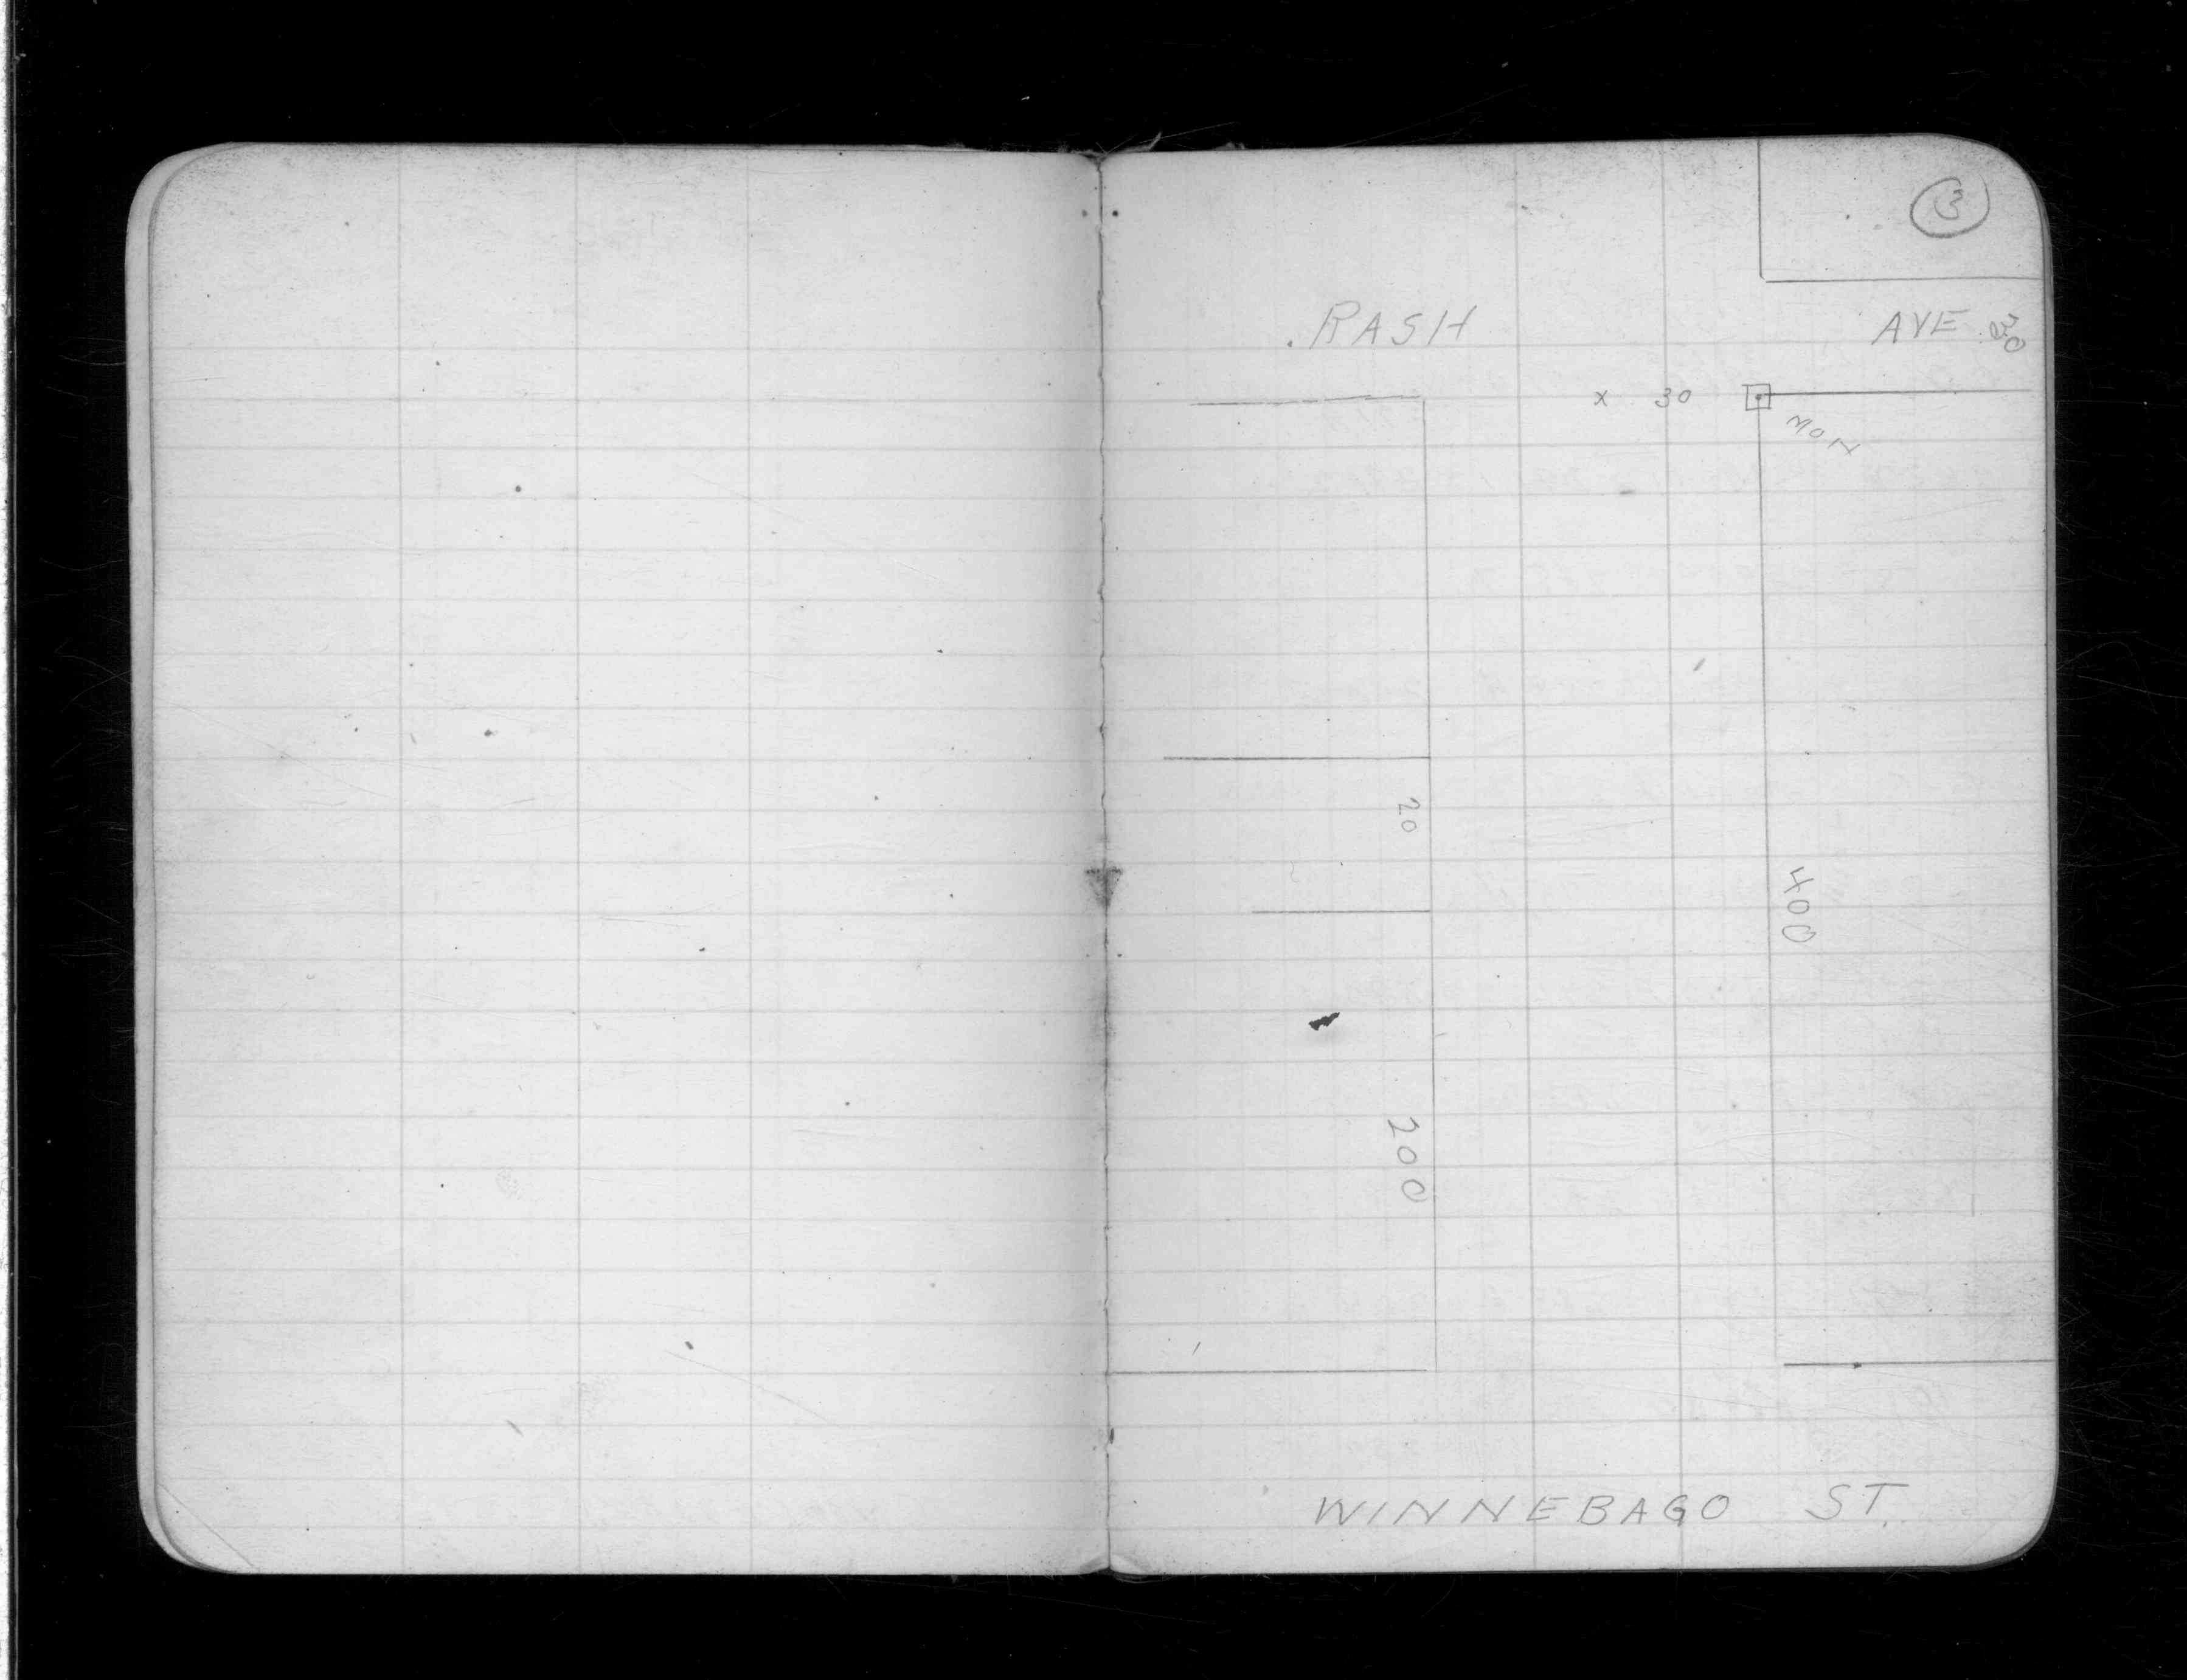 3
RASH AVE 30
x 30
MON
20
400
200
WINNEBAGO ST.